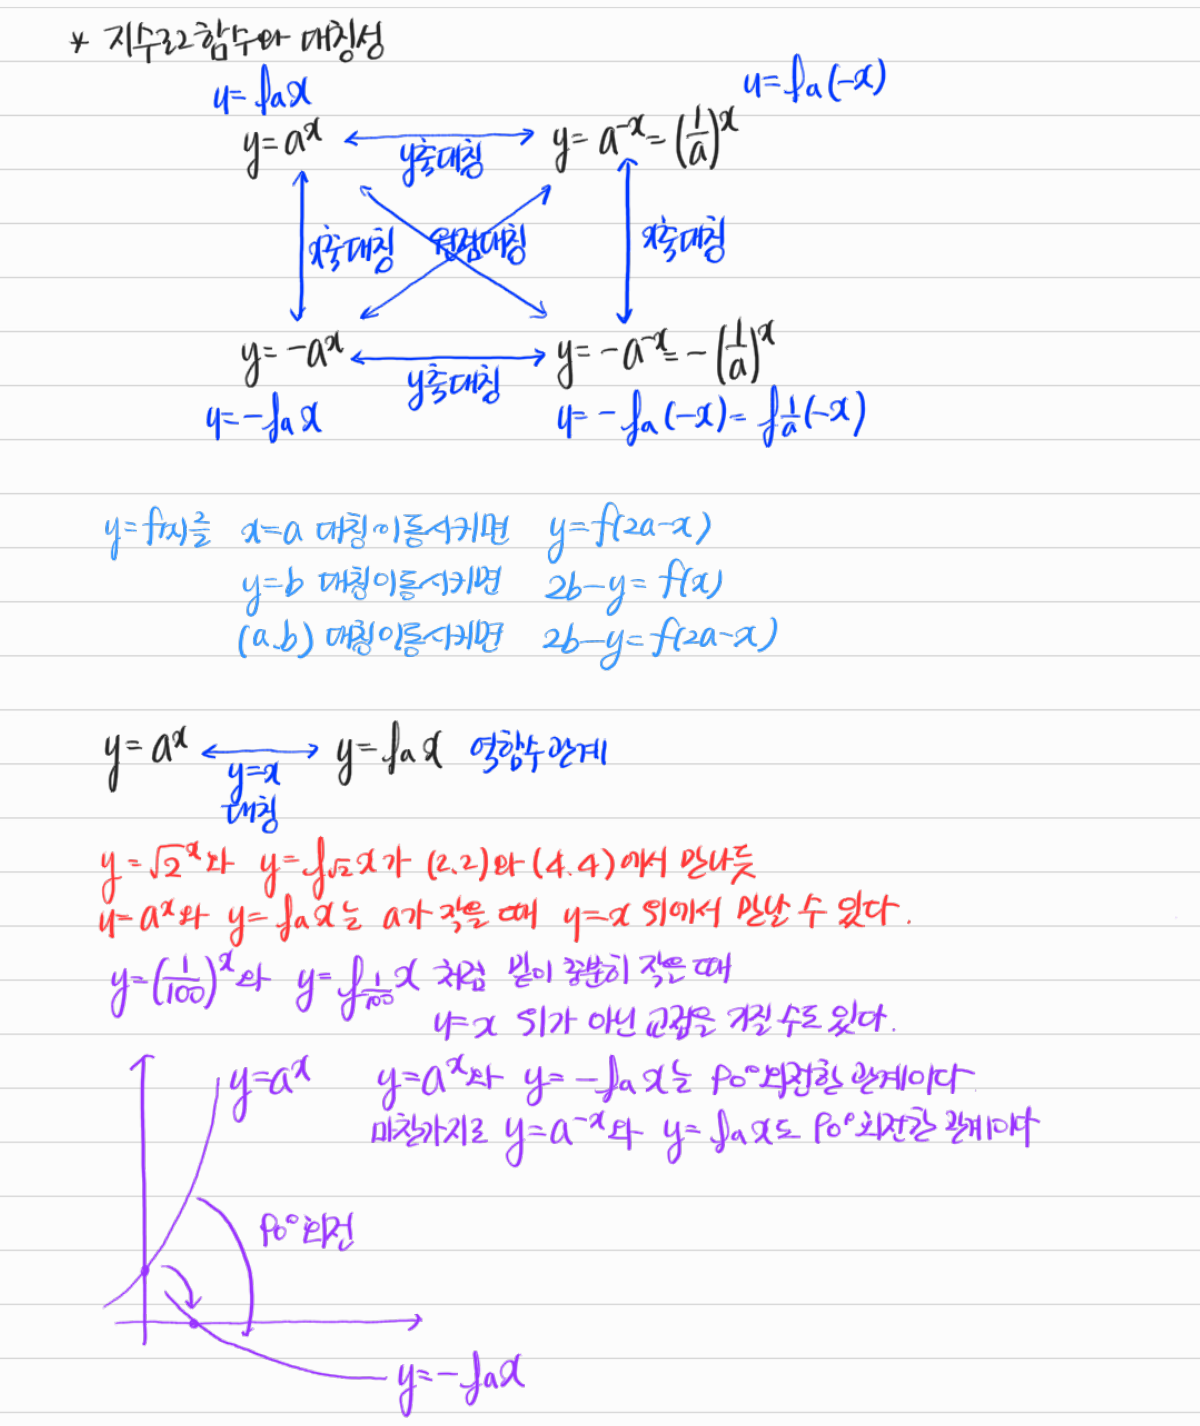 * 지수로그함수와 대칭성
y=fₐx
y=fₐ(-x)
y=aˣ
y축대칭
y=a⁻ˣ=(1/a)ˣ
x축대칭
원점대칭
x축대칭
y=-aˣ
y축대칭
y=-a⁻ˣ=-(1/a)ˣ
y=-fₐx
y=-fₐ(-x)=f_{1/a}(-x)
y=f(x)를 x=a 대칭이동시키면 y=f(2a-x)
y=b 대칭이동시키면 2b-y=f(x)
(a.b) 대칭이동시키면 2b-y=f(2a-x)
y=aˣ
y=fₐx 역함수관계
y=x
대칭
y=√2ˣ와 y=f_{√2}x가 (2.2)와 (4.4)에서 만나듯
y=aˣ와 y=fₐx는 a가 작을 때 y=x 위에서 만날 수 있다.
y=(1/100)ˣ와 y=f_{1/100}x 처럼 밑이 충분히 작은 때
y=x 위가 아닌 교점을 가질 수도 있다.
y=aˣ
y=aˣ와 y=-fₐx는 90°회전한 관계이다
마찬가지로 y=a⁻ˣ와 y=fₐx도 90°회전한 관계이다
90°회전
y=-fₐx